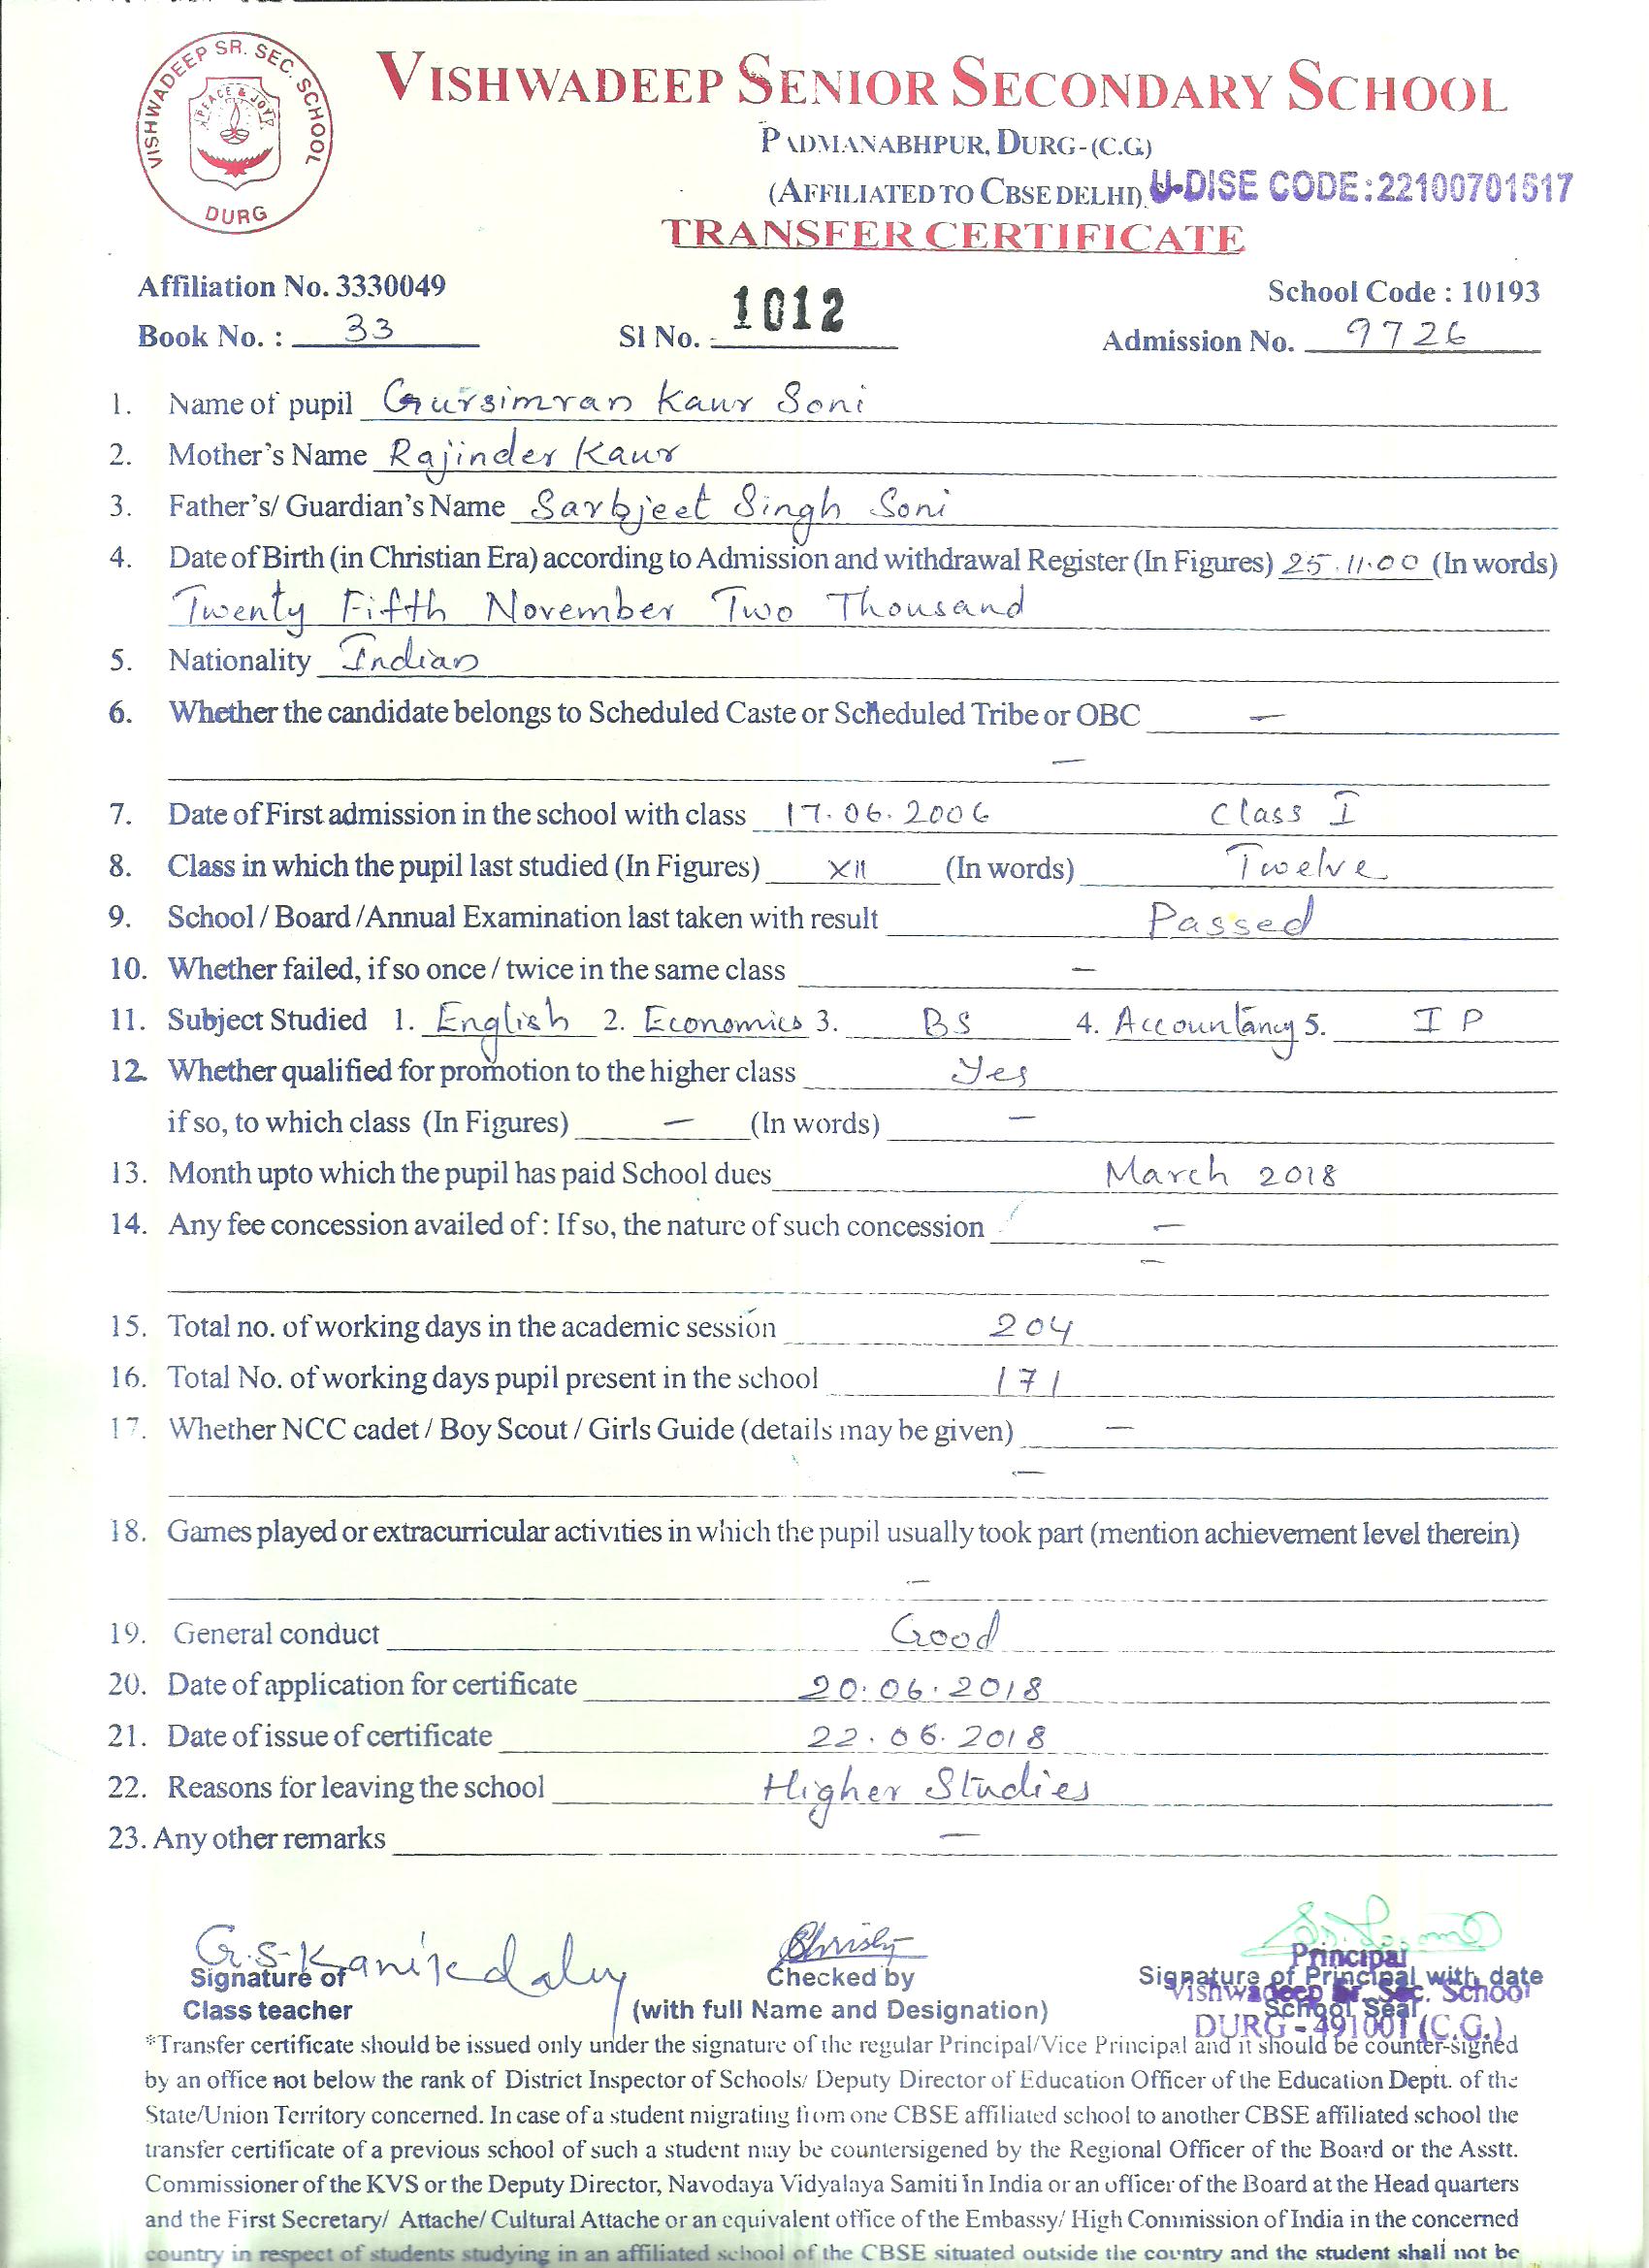 VISHWADEEP SR. SEC. SCHOOL
PEACE & JOY
DURG
VISHWADEEP SENIOR SECONDARY SCHOOL
PADMANABHPUR, DURG-(C.G.)
(AFFILIATED TO CBSE DELHI) U-DISE CODE:22100701517
TRANSFER CERTIFICATE
Affiliation No. 3330049 School Code : 10193
Book No. : 33 Sl No. 1012 Admission No. 9726
1. Name of pupil Gursimran Kaur Soni
2. Mother's Name Rajinder Kaur
3. Father's/ Guardian's Name Sarbjeet Singh Soni
4. Date of Birth (in Christian Era) according to Admission and withdrawal Register (In Figures) 25.11.00 (In words)
Twenty Fifth November Two Thousand
5. Nationality Indian
6. Whether the candidate belongs to Scheduled Caste or Scheduled Tribe or OBC —
—
7. Date of First admission in the school with class 17.06.2006 Class I
8. Class in which the pupil last studied (In Figures) XII (In words) Twelve
9. School / Board /Annual Examination last taken with result Passed
10. Whether failed, if so once / twice in the same class —
11. Subject Studied 1. English 2. Economics 3. BS 4. Accountancy 5. IP
12. Whether qualified for promotion to the higher class Yes
if so, to which class (In Figures) — (In words) —
13. Month upto which the pupil has paid School dues March 2018
14. Any fee concession availed of : If so, the nature of such concession —
—
15. Total no. of working days in the academic session 204
16. Total No. of working days pupil present in the school 171
17. Whether NCC cadet / Boy Scout / Girls Guide (details may be given) —
—
18. Games played or extracurricular activities in which the pupil usually took part (mention achievement level therein)
—
19. General conduct Good
20. Date of application for certificate 20.06.2018
21. Date of issue of certificate 22.06.2018
22. Reasons for leaving the school Higher Studies
23. Any other remarks —
G.S. 
Signature of Checked by Signature of Principal with date
Class teacher (with full Name and Designation) School Seal
Principal
Vishwadeep Sr. Sec. School
DURG - 491001 (C.G.)
*Transfer certificate should be issued only under the signature of the regular Principal/Vice Principal and it should be counter-signed
by an office not below the rank of District Inspector of Schools/ Deputy Director of Education Officer of the Education Deptt. of the
State/Union Territory concerned. In case of a student migrating from one CBSE affiliated school to another CBSE affiliated school the
transfer certificate of a previous school of such a student may be countersigened by the Regional Officer of the Board or the Asstt.
Commissioner of the KVS or the Deputy Director, Navodaya Vidyalaya Samiti in India or an officer of the Board at the Head quarters
and the First Secretary/ Attache/ Cultural Attache or an equivalent office of the Embassy/ High Commission of India in the concerned
country in respect of students studying in an affiliated school of the CBSE situated outside the country and the student shall not be